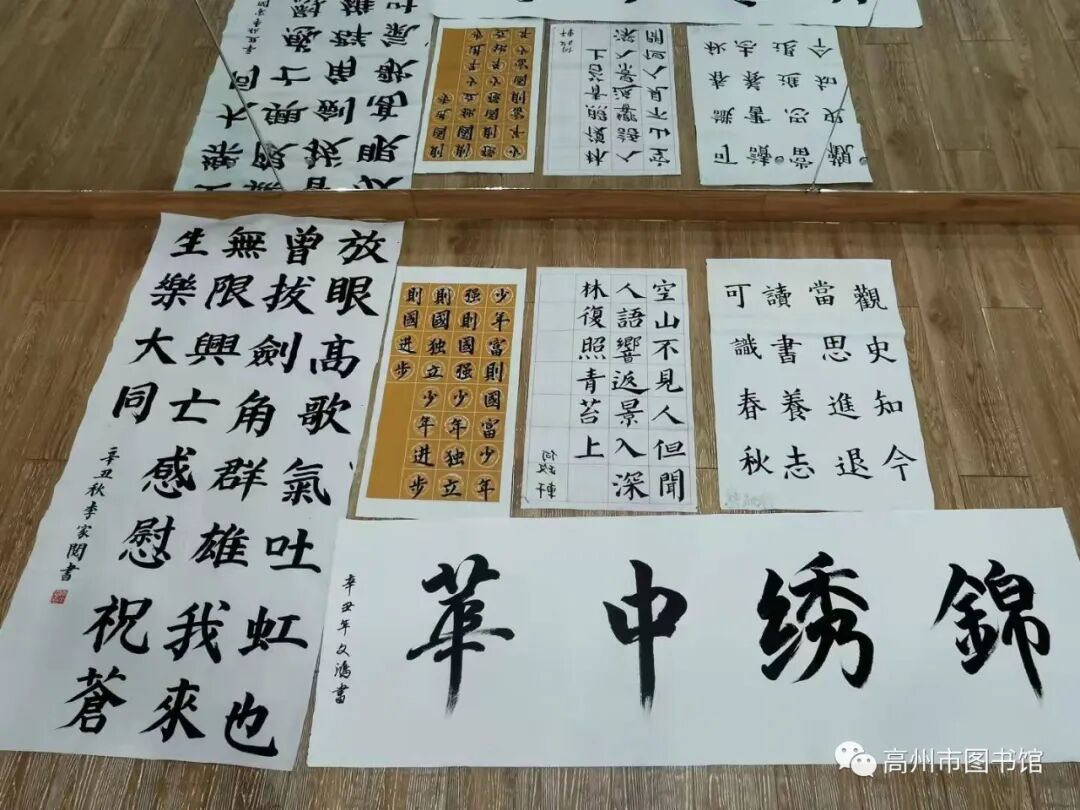 放眼高歌氣吐虹也
曾拔劍角群雄我來
無限興亡感慰祝蒼
生樂大同
辛丑秋李家閱書
少年富則國富少年
强則國强少年独立
則國独立少年进步
則國进步
空山不見人但聞
人語響返景入深
林復照青苔上
何政軒
觀史知今
當思進退
讀書養志
可識春秋
錦绣中華
辛丑年文鴻書
高州市图书馆